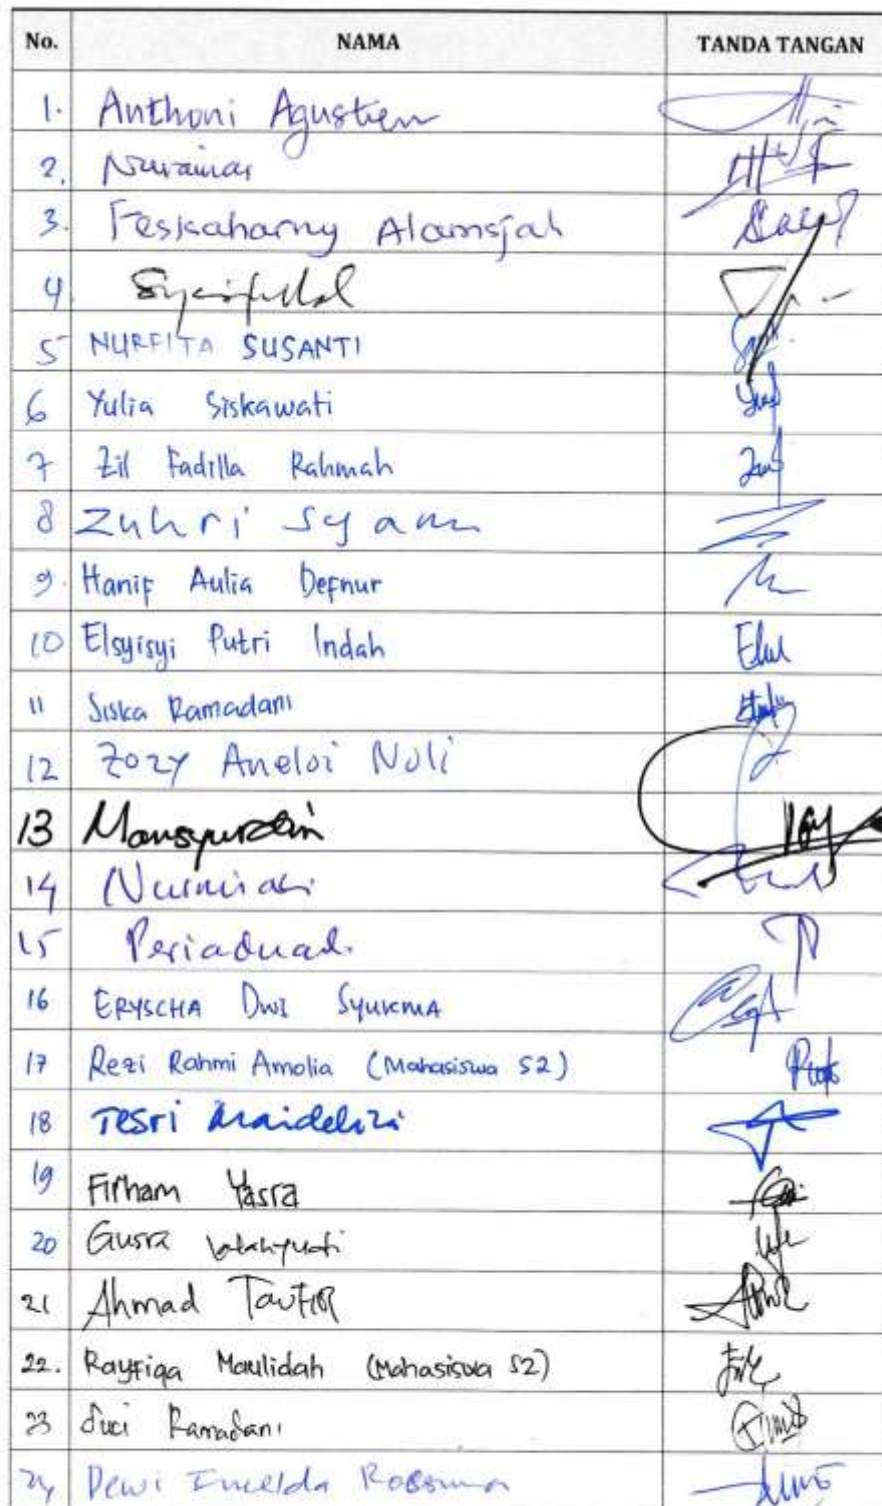 No. NAMA TANDA TANGAN
1. Anthoni Agustien
2. Nurainas
3. Feskaharny Alamsjah
4. Syaifullah
5 NURFITA SUSANTI
6 Yulia Siskawati
7 Zil Fadilla Rahmah
8 Zuhri Syam
9. Hanif Aulia Defnur
10 Elsyisyi Putri Indah
11 Siska Ramadani
12 Zozy Aneloi Noli
13 Mansyurdin
14 Nurmiati
15 Periadnadi
16 ERYSCHA DWI SYUKMA
17 Rezi Rahmi Amolia (Mahasiswa S2)
18 Tesri Maideliza
19 Firham Yasra
20 Gusra
21 Ahmad Taufiq
22. Rayfiqa Maulidah (Mahasiswa S2)
23 Suci Ramadani
24 Dewi Imelda Roesma